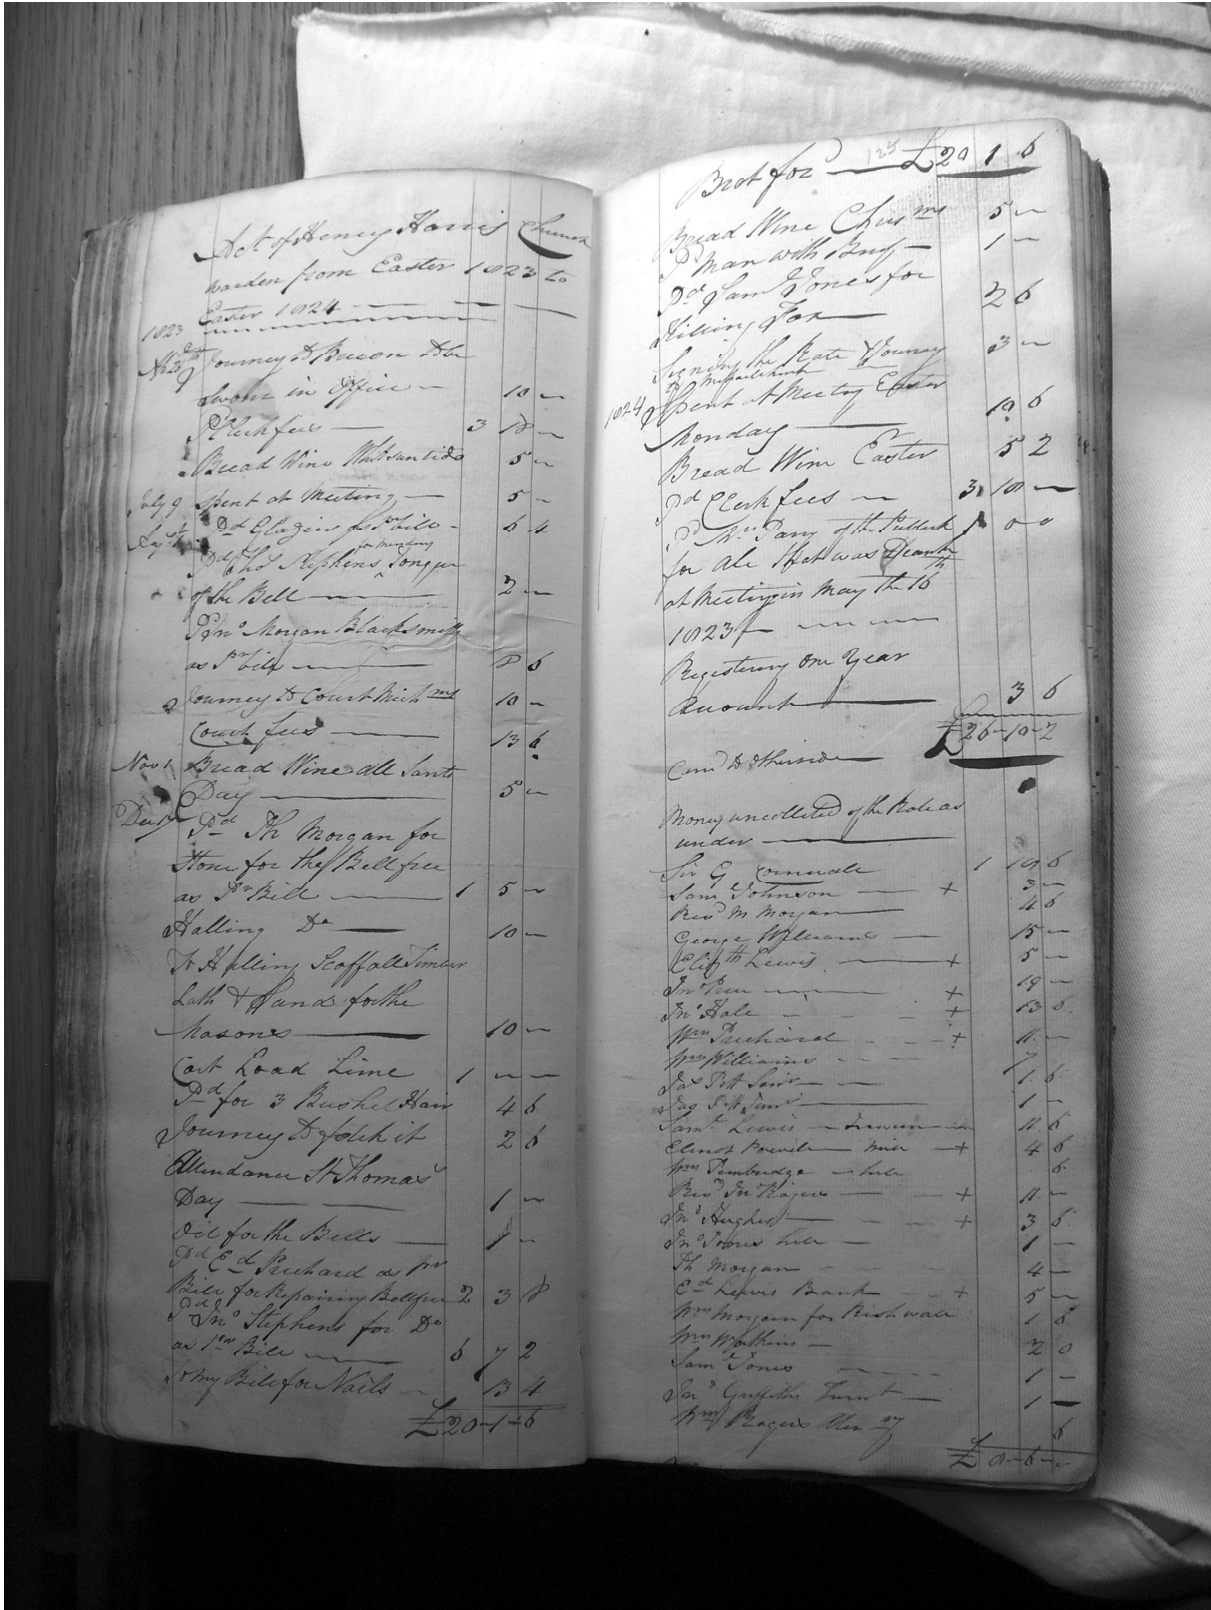 Act of Henry Harris Church
warden from Easter 1823 to
Easter 1824
1823
Journey to Brecon to be
Sworn in Office 10 —
Pd Clerk fees 3 18 —
Bread Wine Whitsuntide 5 —
July 9 Spent at Meeting 5 —
Pd Glazier as Pr bill 6 4
for mending
Pd Thos Stephens Tongue
of the Bell 2 —
Pd Jno Morgan Blacksmith
as Pr bill 8 6
Journey to Court Michms 10 —
Court fees 13 6
Nov 1 Bread Wine All Sants
Day 5 —
Pd Th Morgan for
Stone for the Bellfree
as Pr Bill 1 5 —
Halling Do 10 —
To Halling Scaffall Timber
Lath & Sand for the
Masones 10 —
Cart Load Lime 1 — —
Pd for 3 Bushel Hair 4 6
Journey to fetch it 2 6
Attendance St Thomas
Day 1 —
Oil for the Bells 1 —
Pd Ed Prichard as pr
Bill for Repairing Bellfree 2 3 8
Pd Jno Stephens for Do
as Pr Bill 6 7 2
To My Bill for Nails 13 4
£20 — 1 — 6
Brot ford 125 £20 1 6
Bread Wine Chrisms 5 —
Pd Man with Brief 1 —
Pd Saml Jones for
Killing Fox 2 6
Signing the Rate & Journey 3 —
1824 Spent at Meeting Easter
Monday 10 6
Bread Wine Easter 5 2
Pd Clerk fees 3 18 —
Pd Mrs Parry of the
for Ale that was Drank
at Meeting in May the 16th
1823
Registering One Year
Acount 3 6
£26 — 10 — 2
Card to otherside
Money uncollected of the Rate as
under
Sir G Cornewall 1 18 6
Saml Johnson + 3 —
Revd M Morgan 4 6
George Williams 15 —
Elizth Lewis + 5 —
Jno Pree + 19 —
Jno Hale + 13 6
Wm Prichard + 11 —
Wm Williams 7
Jas Pitt Senr 1 6
Jas Pitt Junr 1 —
Saml Lewis 11 6
Elinor Powell + 4 6
Wm Pembridge 6
Revd Jno Rogers + 11 —
Jno Hughes + 3 6
Jno Jones 1 —
Th Morgan 4 —
Ed Lewis Bank + 5 —
Wm Morgan for Rishwall 1 6
Wm Watkins 2 0
Saml Jones 1 —
Jno Griffiths 1 —
Wm Rogers 6
£ 8 — 6 —